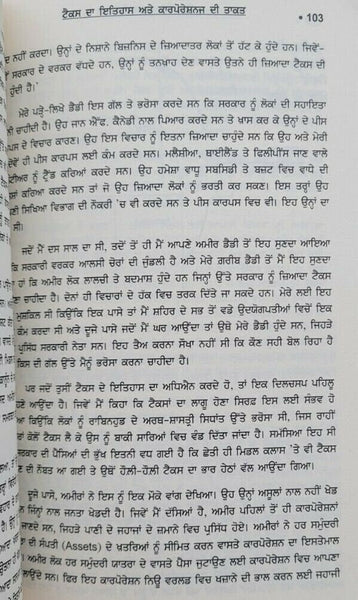 ਟੈਕਸ ਦਾ ਇਤਿਹਾਸ ਅਤੇ ਕਾਰਪੋਰੇਸ਼ਨਜ਼ ਦੀ ਤਾਕਤ • 103
ਨਹੀਂ ਕਰਦਾ। ਉਨ੍ਹਾਂ ਦੇ ਨਿਸ਼ਾਨੇ ਬਿਜ਼ਨਿਸ ਦੇ ਜ਼ਿਆਦਾਤਰ ਲੋਕਾਂ ਤੋਂ ਹੱਟ ਕੇ ਹੁੰਦੇ ਹਨ। ਜਿਵੇਂ-
ਸਰਕਾਰ ਦੇ ਵਰਕਰ ਵੱਧਦੇ ਹਨ, ਉਨ੍ਹਾਂ ਨੂੰ ਤਨਖਾਹ ਦੇਣ ਵਾਸਤੇ ਉਤਨੇ ਹੀ ਜ਼ਿਆਦਾ ਟੈਕਸ ਦੀ
ਹੁੰਦੀ ਹੈ।'
ਮੇਰੇ ਪੜ੍ਹੇ-ਲਿਖੇ ਡੈਡੀ ਇਸ ਗੱਲ ਤੇ ਭਰੋਸਾ ਕਰਦੇ ਸਨ ਕਿ ਸਰਕਾਰ ਨੂੰ ਲੋਕਾਂ ਦੀ ਸਹਾਇਤਾ
ਚਾਹੀਦੀ ਹੈ। ਉਹ ਜਾਨ ਐੱਫ. ਕੈਨੇਡੀ ਨਾਲ ਪਿਆਰ ਕਰਦੇ ਸਨ ਤੇ ਖਾਸ ਕਰ ਕੇ ਉਨ੍ਹਾਂ ਦੇ ਪੀਸ
ਦੇ ਵਿਚਾਰ ਕਾਰਣ। ਉਹ ਇਸ ਵਿਚਾਰ ਨੂੰ ਇਤਨਾ ਜ਼ਿਆਦਾ ਚਾਹੁੰਦੇ ਸਨ ਕਿ ਉਹ ਅਤੇ ਮੇਰੀ
ਦੋਵੇਂ ਹੀ ਪੀਸ ਕਾਰਪਸ ਲਈ ਕੰਮ ਕਰਦੇ ਸਨ। ਮਲੇਸ਼ੀਆ, ਥਾਈਲੈਂਡ ਤੇ ਫਿਲੀਪੀਂਸ ਜਾਣ ਵਾਲੇ
ਨੂੰ ਟ੍ਰੈਂਡ ਕਰਿਆਂ ਕਰਦੇ ਸਨ। ਉਹ ਹਮੇਸ਼ਾ ਵਾਧੂ ਸਬਸਿਡੀ ਤੇ ਬਜਟ ਵਿਚ ਵਾਧੇ ਦੀ
ਕਰਿਆ ਕਰਦੇ ਸਨ ਤਾਂ ਜੋ ਉਹ ਜ਼ਿਆਦਾ ਲੋਕਾਂ ਨੂੰ ਭਰਤੀ ਕਰ ਸਕਣ। ਇਸ ਤਰ੍ਹਾਂ ਉਹ
ਸਿਖਿਆ ਵਿਭਾਗ ਦੀ ਨੌਕਰੀ 'ਚ ਵੀ ਕਰਦੇ ਸਨ ਤੇ ਪੀਸ ਕਾਰਪਸ ਵਿਚ ਵੀ। ਇਹ ਉਨ੍ਹਾਂ ਦਾ
ਸੀ।
ਜਦੋਂ ਮੈਂ ਦਸ ਸਾਲ ਦਾ ਸੀ, ਤਦੋਂ ਤੋਂ ਹੀ ਮੈਂ ਆਪਣੇ ਅਮੀਰ ਡੈਡੀ ਤੋਂ ਇਹ ਸੁਣਦਾ ਆਇਆ
ਸਰਕਾਰੀ ਵਰਕਰ ਆਲਸੀ ਚੋਰਾਂ ਦੀ ਜੁੰਡਲੀ ਹੈ ਅਤੇ ਮੇਰੇ ਗਰੀਬ ਡੈਡੀ ਤੋਂ ਮੈਂ ਇਹ ਸੁਣਦਾ
ਕਿ ਅਮੀਰ ਲੋਕ ਲਾਲਚੀ ਤੇ ਬਦਮਾਸ਼ ਹੁੰਦੇ ਹਨ ਜਿਨ੍ਹਾਂ ਉੱਤੇ ਸਰਕਾਰ ਨੂੰ ਜ਼ਿਆਦਾ ਟੈਕਸ
ਚਾਹੀਦਾ ਹੈ। ਦੋਨਾਂ ਹੀ ਵਿਚਾਰਾਂ ਦੇ ਹੱਕ ਵਿਚ ਤਰਕ ਦਿੱਤੇ ਜਾ ਸਕਦੇ ਹਨ। ਮੇਰੇ ਲਈ ਇਹ
ਮੁਸ਼ਕਿਲ ਸੀ ਕਿਉਂਕਿ ਇਕ ਪਾਸੇ ਤਾਂ ਮੈਂ ਸ਼ਹਿਰ ਦੇ ਸਭ ਤੋਂ ਵੱਡੇ ਉਦਯੋਗਪਤੀਆਂ ਵਿਚੋਂ ਇਕ
ਕੰਮ ਕਰਦਾ ਸੀ ਅਤੇ ਦੂਜੇ ਪਾਸੇ ਜਦੋਂ ਮੈਂ ਘਰ ਆਉਂਦਾ ਤਾਂ ਉੱਥੇ ਮੇਰੇ ਡੈਡੀ ਹੁੰਦੇ ਸਨ, ਜਿਹੜੇ
ਪ੍ਰਸਿੱਧ ਸਰਕਾਰੀ ਨੇਤਾ ਸਨ। ਇਹ ਤੈਅ ਕਰਨਾ ਸੌਖਾ ਨਹੀਂ ਸੀ ਕਿ ਕੌਣ ਸਹੀ ਬੋਲ ਰਿਹਾ ਹੈ
ਕਿਸ ਦੀ ਗੱਲ ਉੱਤੇ ਮੈਨੂੰ ਭਰੋਸਾ ਕਰਨਾ ਚਾਹੀਦਾ ਹੈ।
ਪਰ ਜਦੋਂ ਤੁਸੀਂ ਟੈਕਸ ਦੇ ਇਤਿਹਾਸ ਦਾ ਅਧਿਐਨ ਕਰਦੇ ਹੋ, ਤਾਂ ਇਕ ਦਿਲਚਸਪ ਪਹਿਲੂ
ਆਉਂਦਾ ਹੈ। ਜਿਵੇਂ ਮੈਂ ਕਿਹਾ ਕਿ ਟੈਕਸਾਂ ਦਾ ਲਾਗੂ ਹੋਣਾ ਸਿਰਫ਼ ਇਸ ਲਈ ਸੰਭਵ ਹੋ
ਕਿਉਂਕਿ ਲੋਕਾਂ ਨੂੰ ਰਾਬਿਨਹੁਡ ਦੇ ਅਰਥ-ਸ਼ਾਸਤ੍ਰੀ ਸਿਧਾਂਤ ਉੱਤੇ ਭਰੋਸਾ ਸੀ, ਜਿਸ ਰਾਹੀਂ
ਕੋਲੋਂ ਟੈਕਸ ਲੈ ਕੇ ਉਸ ਨੂੰ ਬਾਕੀ ਸਾਰਿਆਂ ਵਿਚ ਵੰਡ ਦਿੱਤਾ ਜਾਂਦਾ ਹੈ। ਸਮੱਸਿਆ ਇਹ ਸੀ
ਸਰਕਾਰ ਦੀ ਪੈਸਿਆਂ ਦੀ ਭੁੱਖ ਇਤਨੀ ਵਧ ਚੁੱਕੀ ਸੀ ਕਿ ਛੇਤੀ ਹੀ ਮਿਡਲ ਕਲਾਸ 'ਤੇ ਵੀ ਟੈਕਸ
ਦੀ ਨੌਬਤ ਆ ਗਈ ਤੇ ਉਥੋਂ ਹੌਲੀ-ਹੌਲੀ ਟੈਕਸ ਦਾ ਭਾਰ ਹੇਠਾਂ ਵੱਲ ਆਉਂਦਾ ਗਿਆ।
ਦੂਜੇ ਪਾਸੇ, ਅਮੀਰਾਂ ਨੇ ਇਸ ਨੂੰ ਇਕ ਮੌਕੇ ਵਾਂਗ ਦੇਖਿਆ। ਉਹ ਉਨ੍ਹਾਂ ਅਸੂਲਾਂ ਨਾਲ ਨਹੀਂ ਖੇਡ
ਜਿਨ੍ਹਾਂ ਨਾਲ ਜਨਤਾ ਖੇਡਦੀ ਹੈ। ਜਿਵੇਂ ਮੈਂ ਦੱਸਿਆ ਹੈ, ਅਮੀਰ ਪਹਿਲਾਂ ਤੋਂ ਹੀ ਕਾਰਪੋਰੇਸ਼ਨਾਂ
ਜਾਣਦੇ ਸਨ, ਜਿਹੜੇ ਪਾਣੀ ਦੇ ਜਹਾਜਾਂ ਦੇ ਜ਼ਮਾਨੇ ਵਿਚ ਪ੍ਰਸਿੱਧ ਹੋਏ। ਅਮੀਰਾਂ ਨੇ ਹਰ ਸਮੁੰਦਰੀ
ਦੀ ਸੰਪਤੀ (Assets) ਦੇ ਖਤਰਿਆਂ ਨੂੰ ਸੀਮਿਤ ਕਰਨ ਵਾਸਤੇ ਕਾਰਪੋਰੇਸ਼ਨ ਦਾ ਇਸਤੇਮਾਲ
ਅਮੀਰ ਲੋਕ ਹਰ ਸਮੁੰਦਰੀ ਯਾਤਰਾ ਦੇ ਵਾਸਤੇ ਪੈਸਾ ਜੁਟਾਉਣ ਲਈ ਕਾਰਪੋਰੇਸ਼ਨ ਵਿਚ ਆਪਣਾ
ਲਾਉਂਦੇ ਸਨ। ਫਿਰ ਇਹ ਕਾਰਪੋਰੇਸ਼ਨ ਨਿਊ ਵਰਲਡ ਵਿਚ ਖਜ਼ਾਨੇ ਦੀ ਭਾਲ ਕਰਨ ਲਈ ਜਹਾਜ਼ੀ